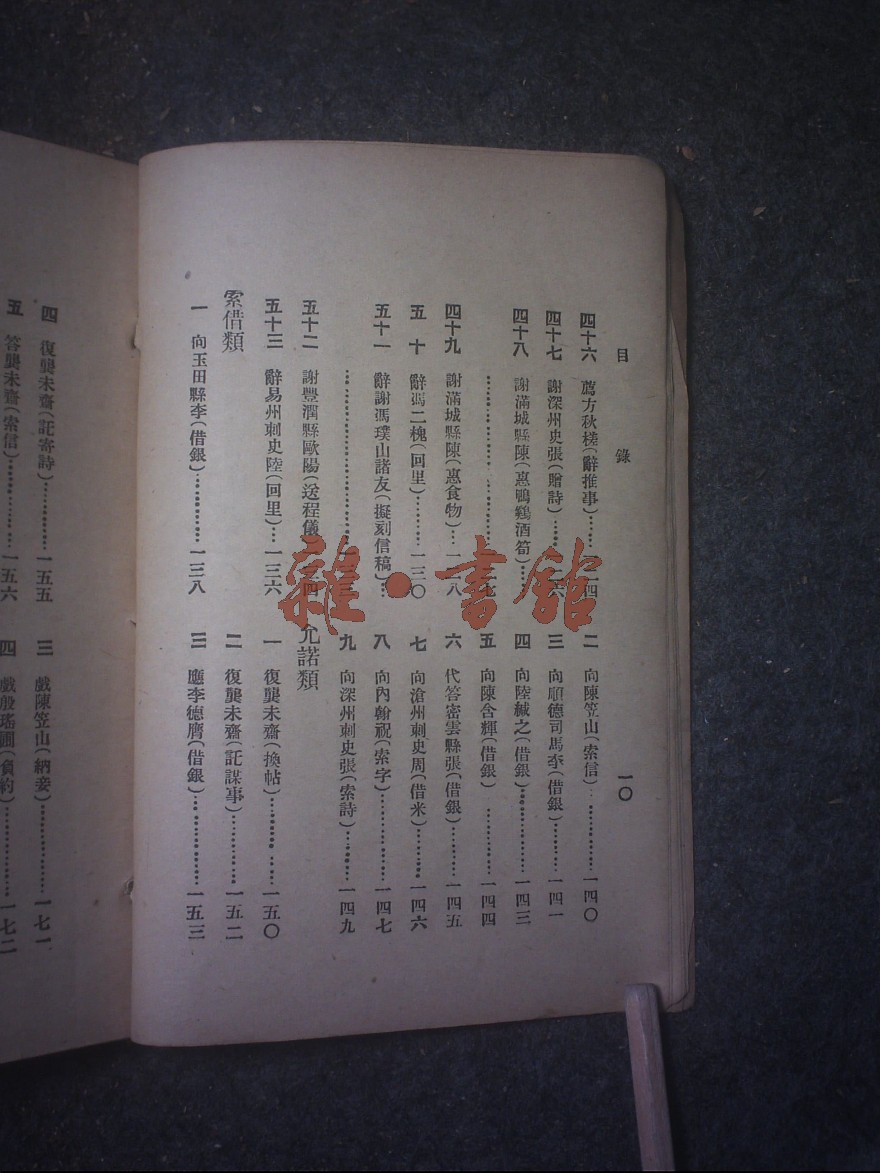 目錄 一〇
四十六 薦方秋槎(辭推事)……二四
四十七 謝深州史張(贈詩)……六
四十八 謝滿城縣陳(惠鴨鷄酒筍)…
……七
四十九 謝滿城縣陳(惠食物)…一二八
五十 辭馮二槐(回里)……一三〇
五十一 辭謝馮璞山諸友(擬刻信稿)…
……
五十二 謝豐潤縣歐陽(送程儀 四
五十三 辭易州刺史陸(回里)…一三六
索借類
一 向玉田縣李(借銀)……一三八
二 向陳笠山(索信)……一四〇
三 向順德司馬李(借銀)……一四一
四 向陸緘之(借銀)……一四三
五 向陳含輝(借銀)……一四四
六 代答密雲縣張(借銀)……一四五
七 向滄州刺史周(借米)……一四六
八 向內翰祝(索字)……一四七
九 向深州刺史張(索詩)……一四九
允諾類
一 復龔未齋(換帖)……一五〇
二 復龔未齋(託謀事)……一五二
三 應李德膺(借銀)……一五三
四 復龔未齋(託寄詩)……一五五
五 答龔未齋(索信)……一五六
三 戲陳笠山(納妾)……一七一
四 戲殷瑤圃(負約)……一七二
雜·書館